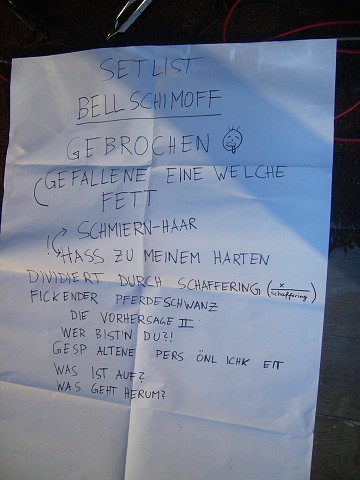 SETLIST
BELLSCHIMOFF
GEBROCHEN
GEFALLENE EINE WELCHE
FETT
SCHMIERN-HAAR
HASS ZU MEINEM HARTEN
DIVIDIERT DURCH SCHAFFERING (x/schaffering)
FICKENDER PFERDESCHWANZ
DIE VORHERSAGE II
WER BIST'N DU?!
GESP ALTENE PERS ÖNL ICHK EIT
WAS IST AUF?
WAS GEHT HERUM?